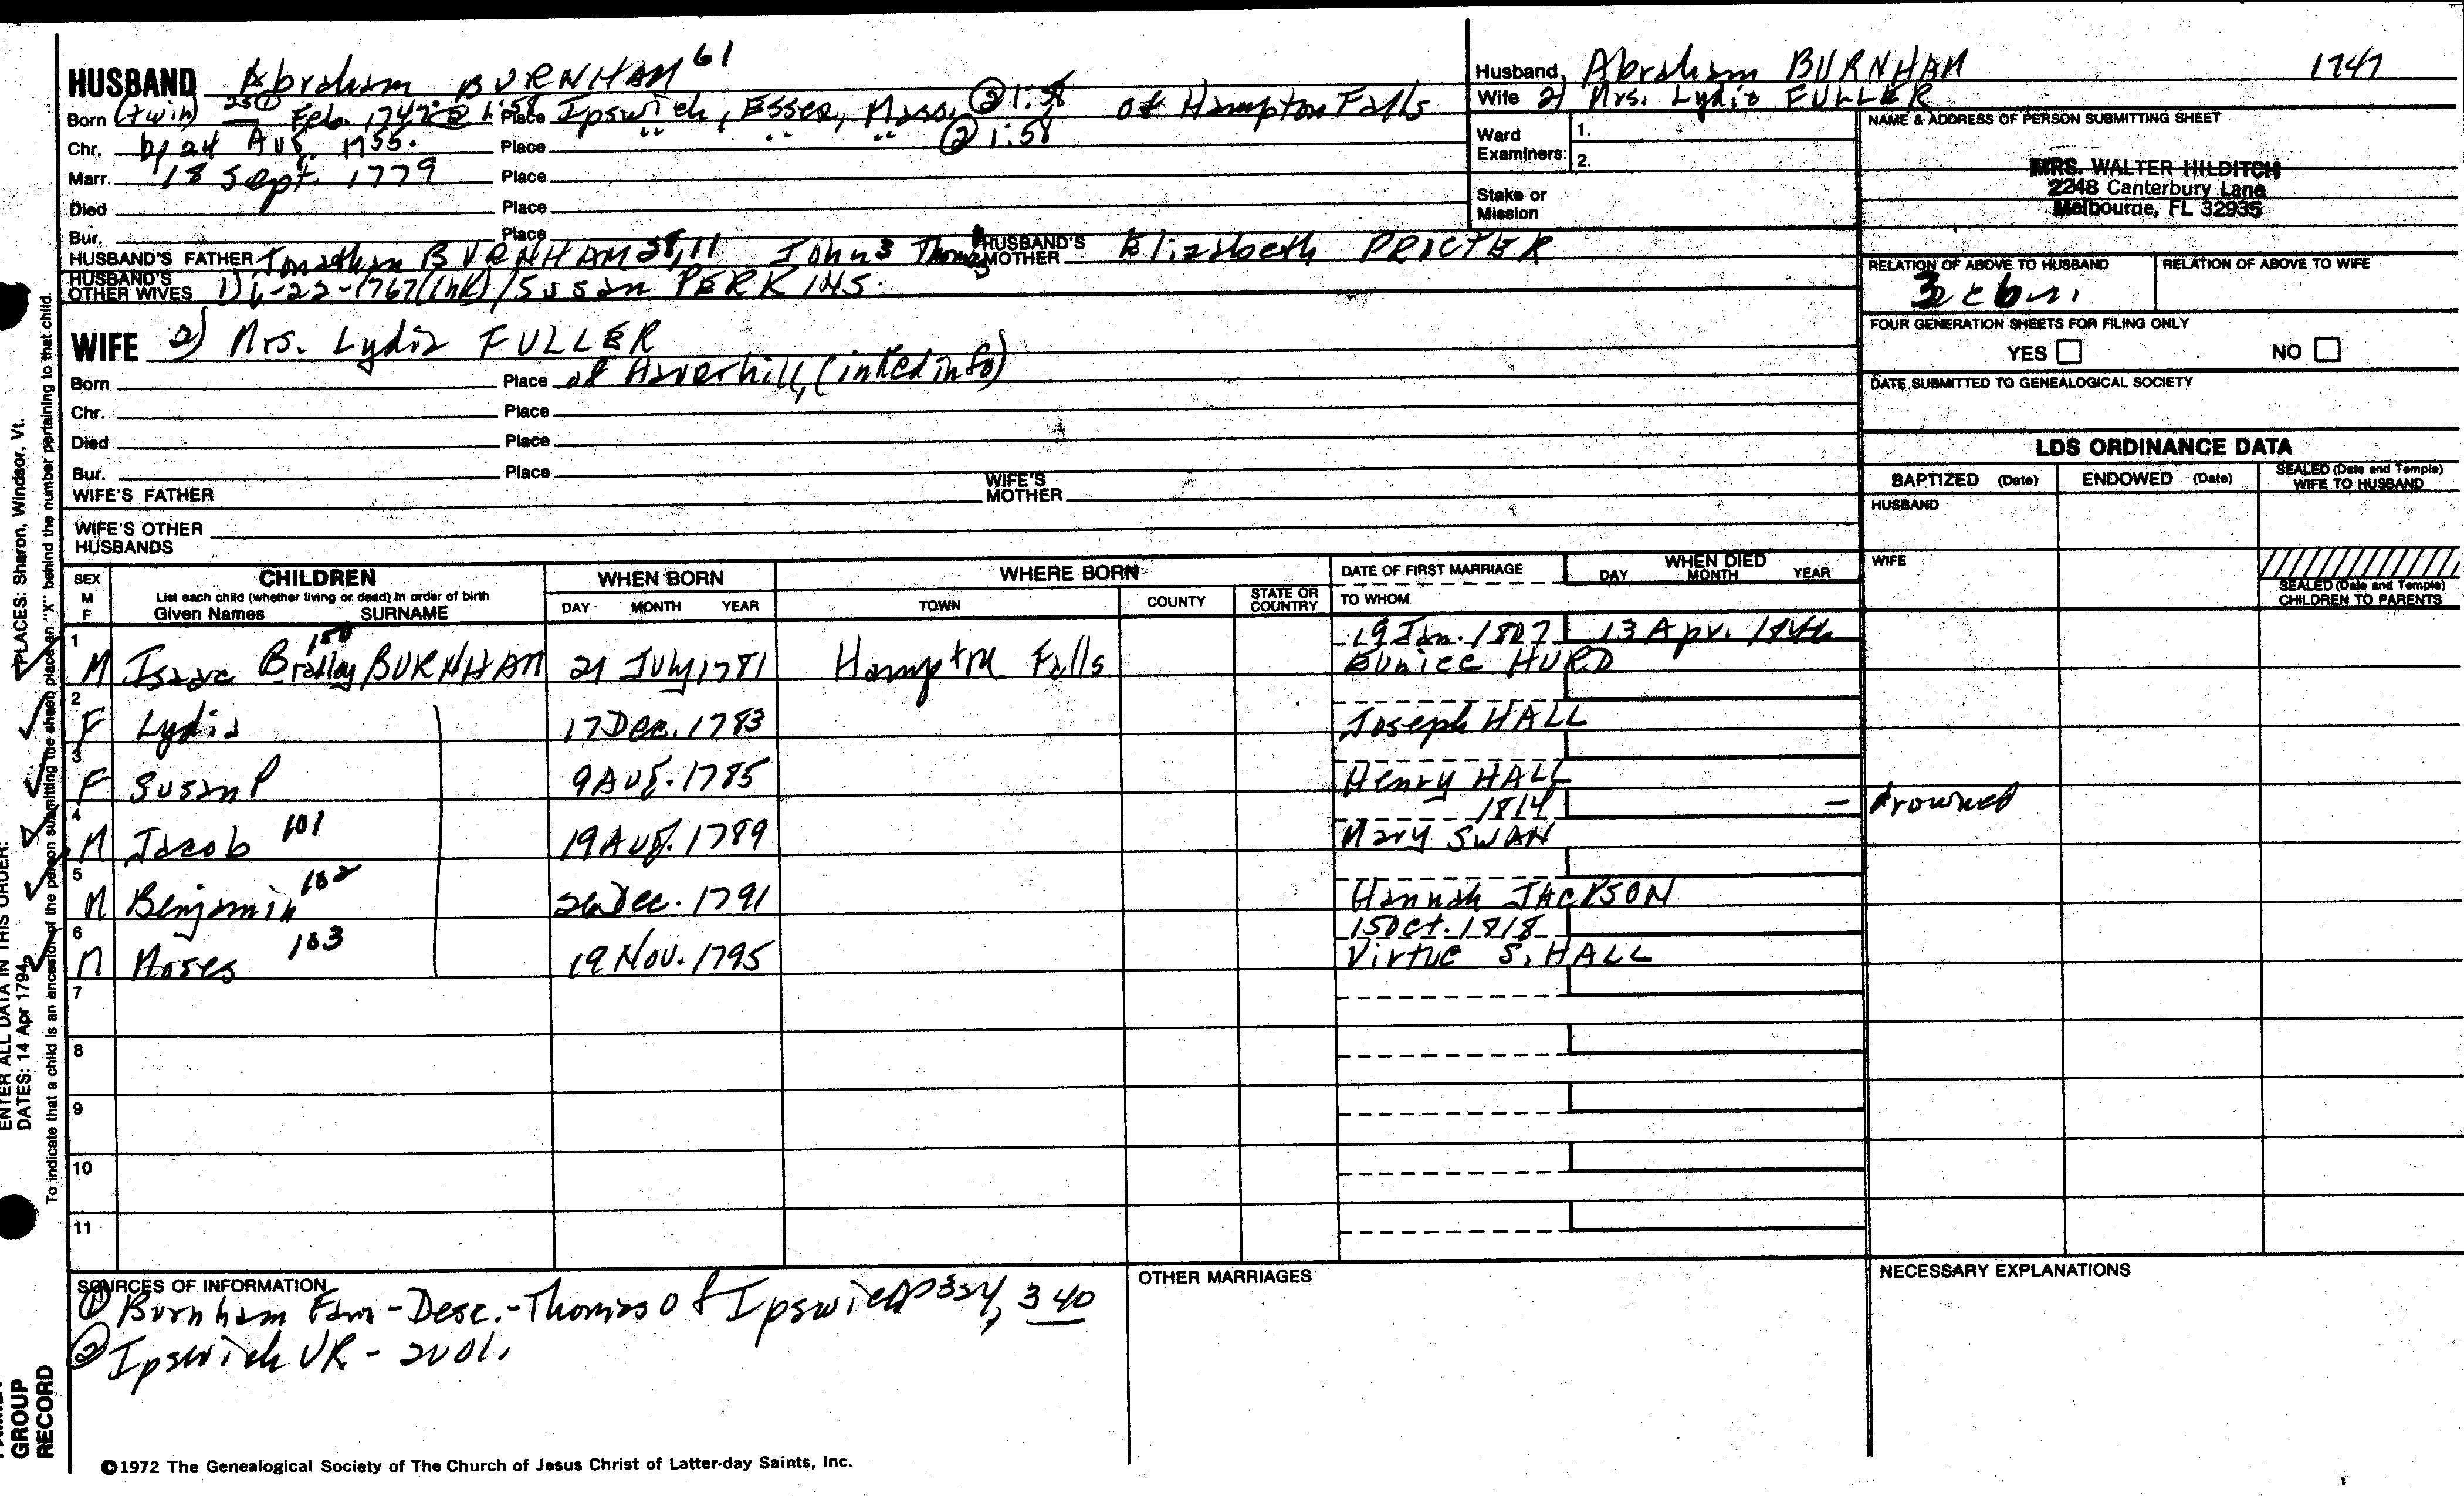 HUSBAND Abraham BURNHAM 61
Born (twin) 25① Feb. 1747 @ 1:58 Place Ipswich, Essex, Mass, ② 1:58 of Hampton Falls
Chr. bp 24 Aug. 1755. Place " " " ② 1:58
Marr. 18 Sept. 1779 Place
Died Place
Bur. Place
HUSBAND'S FATHER Jonathan BURNHAM 28, 11 John3 Thomas HUSBAND'S MOTHER Elizabeth PROCTER
HUSBAND'S OTHER WIVES 1) 6-22-1767 (ink) / Susan PERKINS.
WIFE 2) Mrs. Lydia FULLER
Born Place of Haverhill, (inked info)
Chr. Place
Died Place
Bur. Place
WIFE'S FATHER WIFE'S MOTHER
WIFE'S OTHER HUSBANDS
Husband, Abraham BURNHAM 1747
Wife 2) Mrs. Lydia FULLER
Ward Examiners: 1.
2.
Stake or Mission
NAME & ADDRESS OF PERSON SUBMITTING SHEET
MRS. WALTER HILDITCH
2248 Canterbury Lane
Melbourne, FL 32935
RELATION OF ABOVE TO HUSBAND RELATION OF ABOVE TO WIFE
FOUR GENERATION SHEETS FOR FILING ONLY
YES NO
DATE SUBMITTED TO GENEALOGICAL SOCIETY
LDS ORDINANCE DATA
BAPTIZED (Date) ENDOWED (Date) SEALED (Date and Temple) WIFE TO HUSBAND
HUSBAND
WIFE
SEALED (Date and Temple) CHILDREN TO PARENTS
SEX M F CHILDREN List each child (whether living or dead) in order of birth Given Names SURNAME WHEN BORN DAY MONTH YEAR WHERE BORN TOWN COUNTY STATE OR COUNTRY DATE OF FIRST MARRIAGE TO WHOM WHEN DIED DAY MONTH YEAR
1 19 Jan. 1807 13 Apr. 1846
M Isaac Bradley BURNHAM 21 July 1781 Hampton Falls Eunice HURD
2
F Lydia 17 Dec. 1783 Joseph HALL
3
F Susan P 9 Aug. 1785 Henry HALL
4 1814 – drowned
M Jacob 101 19 Aug. 1789 Mary SWAN
5
M Benjamin 102 26 Dec. 1791 Hannah JACKSON
6 15 Oct. 1818
M Moses 103 19 Nov. 1795 Virtue S. HALL
7
8
9
10
11
SOURCES OF INFORMATION
① Burnham Fam - Desc. - Thomas of Ipswich p 334, 340
② Ipswich VR - 2 vol.
OTHER MARRIAGES
NECESSARY EXPLANATIONS
©1972 The Genealogical Society of The Church of Jesus Christ of Latter-day Saints, Inc.
GROUP
RECORD
ENTER ALL DATA IN THIS ORDER:
DATES: 14 Apr 1794
PLACES: Sharon, Windsor, Vt.
To indicate that a child is an ancestor of the person submitting the sheet, place an "X" behind the number pertaining to that child.